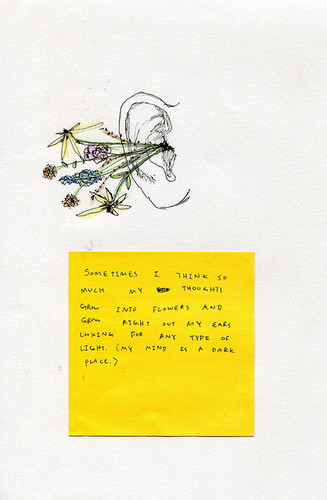 SOMETIMES I THINK SO
MUCH MY THOUGHTS
GROW INTO FLOWERS AND
GROW RIGHT OUT MY EARS
LOOKING FOR ANY TYPE OF
LIGHT. (MY MIND IS A DARK
PLACE.)